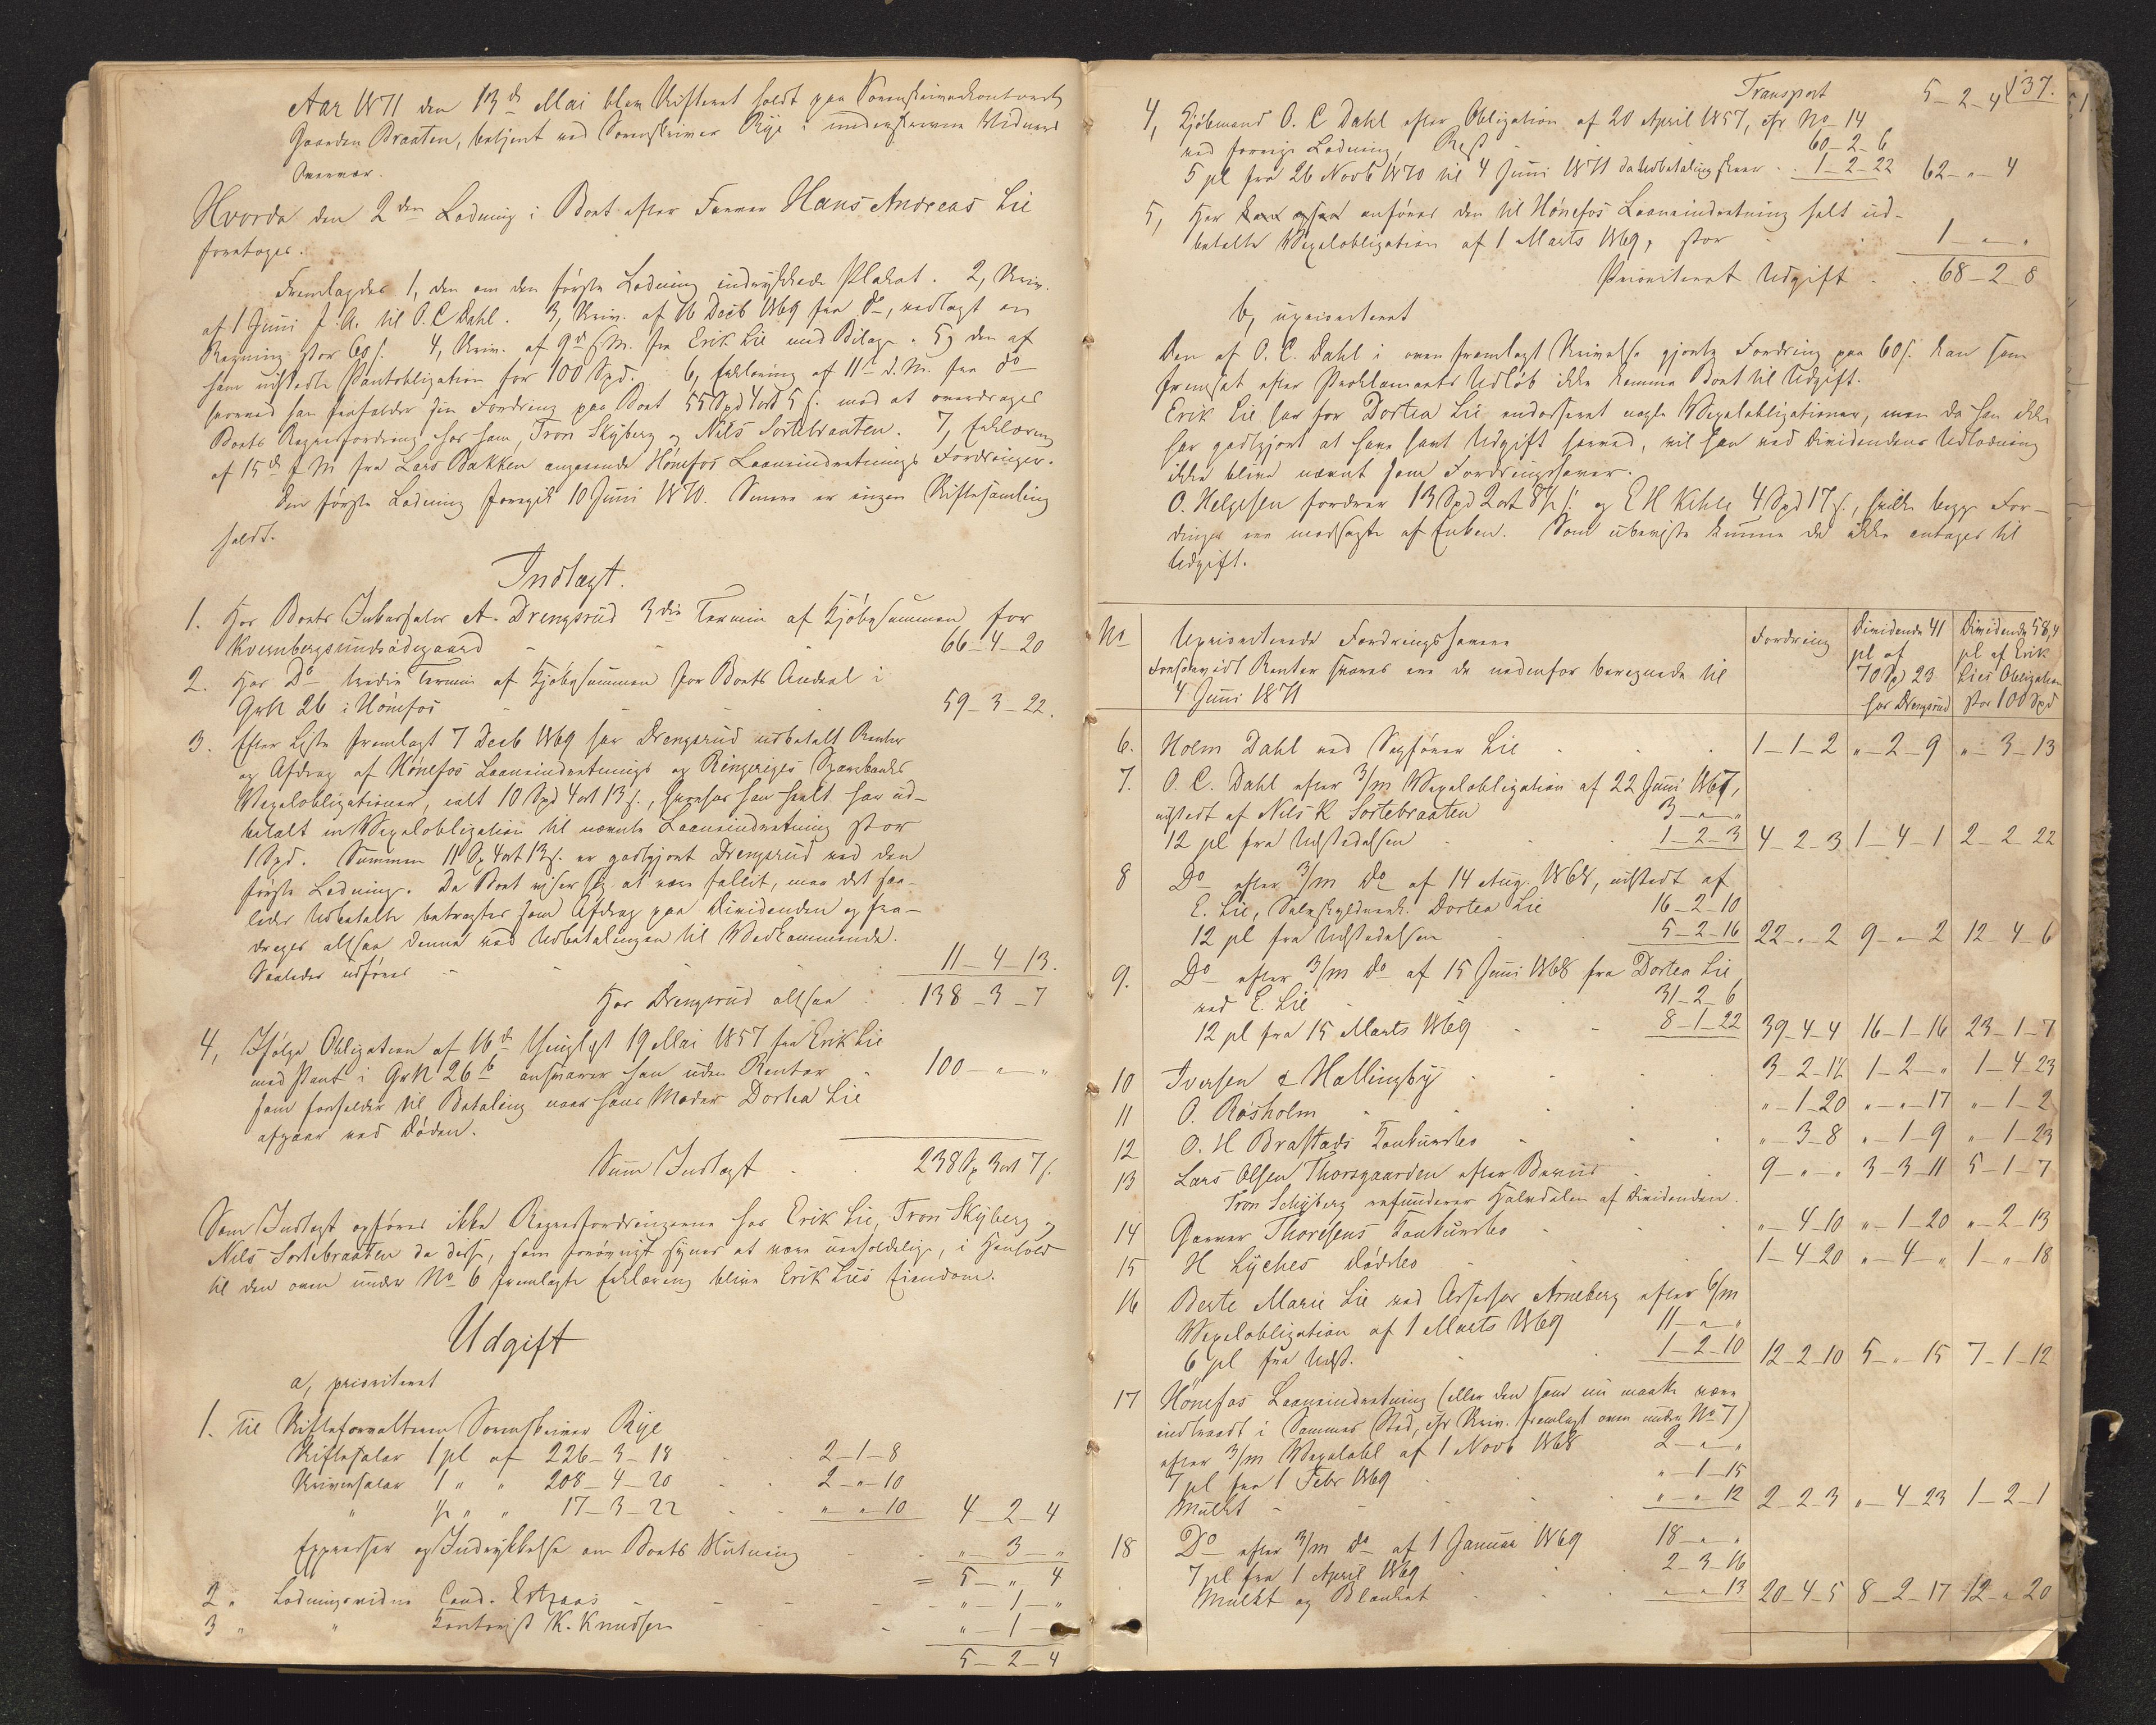 Aar 1871 den 13de Mai blev Skifteret holdt paa Sorenskriverkontoret
Gaarden Braaten, betjent ved Sorenskriver Rye i underskrevne Vidners
Overvær.
Hvorda den 2den Lodning i Boet efter Farver Hans Andreas Lie
foretoges.
Fremlagdes 1, den om den første Lodning indrykkede Plakat. 2, Skriv.
af 1 Juni f. A. til O. C. Dahl. 3, Skriv. af 16 Decb 1869 fra Do, vedlagt en
Regning stor 60 s. 4, Skriv. af 9de f. M. fra Erik Lie med Bilage. 5, den af
ham udstedte Pantobligation for 100 Spd. 6, Erklæring af 11te d. M. fra do
hvorved han frafalder sin Fordring paa Boet 55 Spd 4 ort 5 s. mod at overdrages
Boets Regresfordring hos ham, Tron Skyberg og Nils Sortebraaten. 7, Erklæring
af 15de f. M. fra Lars Bakken angaaende Hønefos Laaneindretnings Fordringer.
Den første Lodning foregik 10 Juni 1870. Senere er ingen Skiftesamling
holdt.
Indtægt.
1. Hos Boets Inkassator A. Drengsrud 3die Termin af Kjøbesummen for
Kvernbergsundsødegaard - - 66-4-20
2. Hos Do tredie Termin af Kjøbesummen for Boets Andeel i
GrN 26 i Hønefos - - 59-3-22.
3. Efter Liste fremlagt 7 Decb 1869 har Drengsrud udbetalt Renter
og Afdrag af Hønefos Laaneindretnings og Ringeriges Sparebanks
Vexelobligationer, ialt 10 Spd 4 ort 13 s., hvorhos han heelt har ud-
betalt en Vexelobligation til nævnte Laaneindretning stor
1 Spd. Summen 11 Sp 4 ort 13 s. er godtgjort Drengsrud ved den
første Lodning. Da Boet viser sig at være fallit, maa det saa-
ledes Udbetalte betragtes som Afdrag paa Dividenden og fra-
drages altsaa denne ved Udbetalingen til Vedkommende.
Saaledes udføres - - 11-4-13.
Hos Drengsrud altsaa . . 138-3-7
4, Ifølge Obligation af 16de thinglyst 19 Mai 1857 fra Erik Lie
med Pant i GrN 26b ansvarer han uden Renter - 100-"-"
som forfalder til Betaling naar hans Moder Dortea Lie
afgaar ved Døden.
Sum Indtægt . . 238 Sp 3 ort 7 s.
Som Indtægt opføres ikke Regresfordringerne hos Erik Lie, Tron Skyberg og
Nils Sortebraaten da disse, som forøvrigt synes at være uerholdelige, i Henhold
til den oven under No 6 fremlagte Erklæring blive Erik Lies Eiendom.
Udgift
a, prioriteret
1. Til Skifteforvalteren Sorenskriver Rye
Skiftesalær 1 pl af 226-3-18 . . 2-1-8
Skriversalær 1 " " 208-4-20 . . 2-"-10
" ½ " " 17-3-22 . . "-"-10 4-2-4
Expresser og Indrykkelse om Boets Slutning - "-3-"
= 5-"-4
2 " Lodningsvidne Cand. Estraas - - "-1-"
3 " " Kontorist K. Knudsen - "-1-
5-2-4
137.
Transport 5-2-4
4, Kjøbmand O. C Dahl efter Obligation af 20 April 1857, cfr No 14
ved forrige Lodning, Rest 60-2-6
5 pl fra 26 Novb 1870 til 4 Juni 1871 da Udbetaling skeer . . 1-2-22 62-"-4
5, Her anføres den til Hønefos Laaneindretning helt ud-
betalte Vexelobligation af 1 Marts 1869, stor 1-"-"
Prioriteret Udgift . . 68-2-8
b, uprioriteret
Den af O. C. Dahl i oven fremlagt Skrivelse gjorte Fordring paa 60 s. kan som
fremsat efter Proklamaets Udløb ikke komme Boet til Udgift.
Erik Lie har for Dortea Lie endosseret nogle Vexelobligationer, men da han ikke
har godtgjort at have havt Udgift herved, vil han ved Dividendens Udlodning
ikke blive nævnt som Fordringshaver.
O. Helgesen fordrer 13 Spd 2 ort 8½ s. og E H Kihle 4 Spd 17 s., hvilke begge For-
dringer ere modsagte af Enken. Som ubeviste kunne de ikke antages til
Udgift.
No Uprioriterede Fordringshavere Fordring Dividende 41 Dividende 58,4
pl af pl af Erik
Forsaavidt Renter svares ere de nedenfor beregnede til 70 Spd 23 Lies Obligation
4 Juni 1871 hos Drengsrud stor 100 Spd
6. Holm Dahl ved Sagfører Lie - . . 1-1-2 "-2-9 "-3-13
7. O. C. Dahl efter 3/m Vexelobligation af 22 Juni 1867,
udstedt af Nils K Sortebraaten 3-"-"
12 pl fra Udstedelsen - . 1-2-3 4-2-3 1-4-1 2-2-22
8 Do efter 3/m Do af 14 Aug. 1868, udstedt af
E. Lie, Selvskyldnersk. Dortea Lie 16-2-10
12 pl fra Udstedelsen - 5-2-16 22-"-2 9-"-2 12-4-6
9. Do efter 3/m do af 15 Juni 1868 fra Dortea Lie
ved E. Lie - . 31-2-6
12 pl fra 15 Marts 1869 - - 8-1-22 39-4-4 16-1-16 23-1-7
10 Iversen & Hallingby - - - 3-2-14 1-2-" 1-4-23
11 O. Røsholm - - . "-1-20 "-"-17 "-1-2
12 O. H Brastads Konkursbo - - . "-3-8 "-1-9 "-1-23
13 Lars Olsen Thorsgaarden efter Beviis - . 9-"-" 3-3-11 5-1-7
Tron Schyberg refunderer Halvdelen af Dividenden.
14 Garver Thoresens Konkursbo - . "-4-10 "-1-20 "-2-13
15 H Lyches Dødsbo - . 1-4-20 "-4-" 1-"-18
16 Berte Marie Lie ved Assessor Arneberg efter 6/m
Vexelobligation af 1 Marts 1869 11-"-"
6 pl fra Udst. - . 1-2-10 12-2-10 5-"-15 7-1-12
17 Hønefos Laaneindretning (eller den som nu maatte være
indtraadt i Sammes Sted, cfr Skriv. fremlagt oven under No 7)
efter 3/m Vexelobl af 1 Novb 1868 2-"-"
7 pl fra 1 Febr 1869 - "-1-15
Mulkt - - - "-"-12 2-2-3 "-4-23 1-2-1
18 Do efter 3/m do af 1 Januar 1869 18-"-"
7 pl fra 1 April 1869 - . 2-3-16
Mulkt og Blanket - . "-"-13 20-4-5 8-2-17 12-"-20